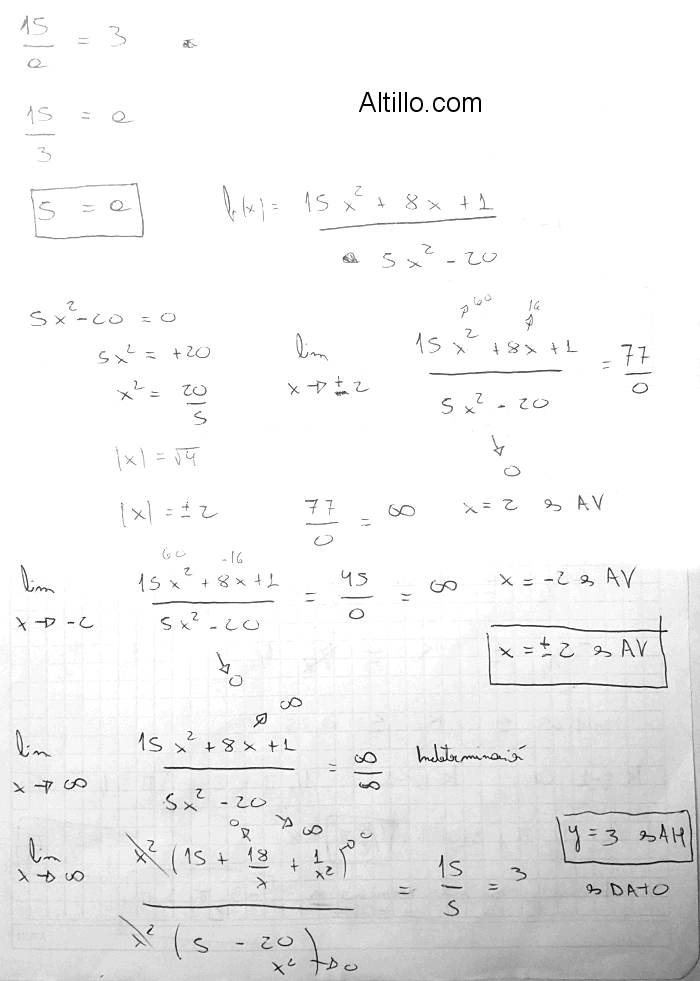 15/a = 3
Altillo.com
15/3 = a
5 = a
h(x) = (15x² + 8x + 1)/(5x² - 20)
5x² - 20 = 0
5x² = +20
x² = 20/5
|x| = √4
|x| = ± 2
lim x→±2 (15x² + 8x + 1)/(5x² - 20) = 77/0
60 16
0
77/0 = ∞ x = 2 es AV
lim x→-2 (15x² + 8x + 1)/(5x² - 20) = 45/0 = ∞ x = -2 es AV
60 -16
0
x = ± 2 es AV
lim x→∞ (15x² + 8x + 1)/(5x² - 20) = ∞/∞ Indeterminación
∞
∞
lim x→∞ x²(15 + 18/x + 1/x²)/x²(5 - 20/x²) = 15/5 = 3
0 0
→0
y = 3 es AH
es DATO